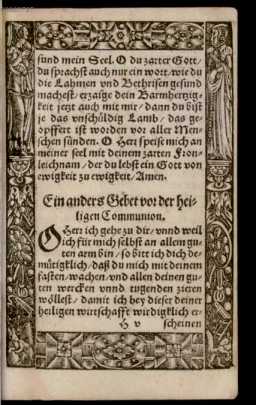 sund mein Seel. O du zarter Gott/
du sprachst auch nur ein wort/ wie du
die Lahmen vnd Bethrisen gesund
machest/ erzaige dein Barmhertzig-
keit jetzt auch mit mir/ dann du bist
je das vnschuldig Lamb/ das ge-
opffert ist worden vor aller Men-
schen sünden. O Herr speise mich an
meiner seel mit deinem zarten Fron-
leichnam/ der du lebst ein Gott von
ewigkeit zu ewigkeit/ Amen.
Ein anders Gebet vor der hei-
ligen Communion.
O Herr ich gehe zu dir/ vnnd weil
ich für mich selbst an allem gu-
ten arm bin/ so bitt ich dich de-
mütigklich/ daß du mich mit deinem
fasten/ wachen/ vnd allen deinen gu-
ten wercken vnnd tugenden zieren
wöllest/ damit ich bey dieser deiner
heiligen wirtschafft wirdigklich er-
H v scheinen